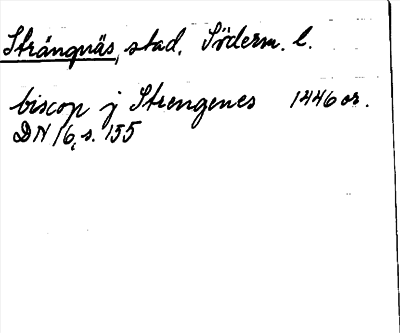 Strängnäs, stad. Söderm. l.
biscop j Strengenes 1446 or.
DN 16, s. 155